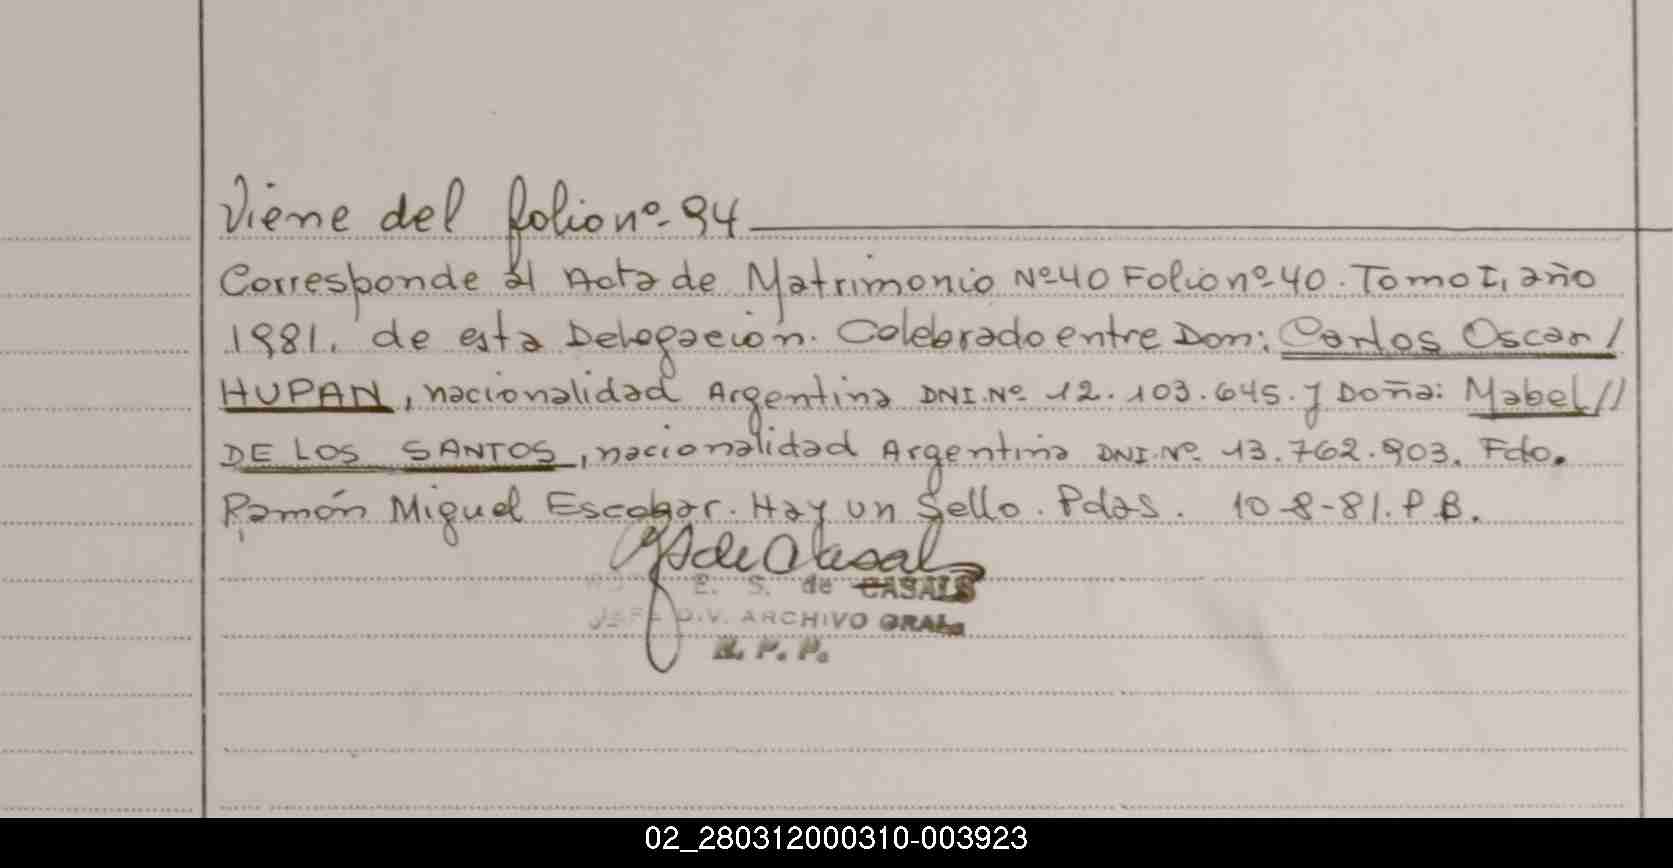 Viene del folio nº-94
Corresponde al Acta de Matrimonio Nº-40 Folio nº-40. Tomo I, año
1981. de esta Delegación. Celebrado entre Don: Carlos Oscar /
HUPAN, nacionalidad Argentina DNI.Nº 12.103.645. y Doña: Mabel //
DE LOS SANTOS, nacionalidad Argentina DNI.Nº 13.762.903. Fdo.
Ramón Miguel Escobar. Hay un Sello. Pdas. 10-8-81. P.B.
E. S. de CASALS
JEFE DIV. ARCHIVO GRAL.
R. P. P.
02_280312000310-003923